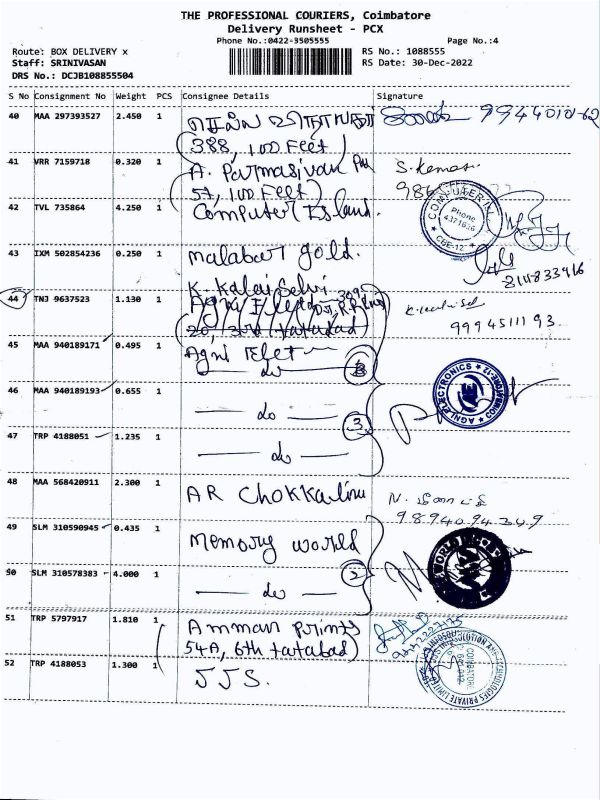 THE PROFESSIONAL COURIERS, Coimbatore
Delivery Runsheet - PCX
Phone No.:0422-3505555
Page No.:4
Route: BOX DELIVERY x
RS No.: 1088555
Staff: SRINIVASAN
RS Date: 30-Dec-2022
DRS No.: DCJB108855504
S No Consignment No Weight PCS Consignee Details Signature
40 MAA 297393527 2.450 1
388, 100 Feet
41 VRR 7159718 0.320 1 A. Parmasivan
57, 100 Feet
S. Kemas.
42 TVL 735864 4.250 1 Computer Island.
Phone
4371656
CBE-12
43 IXM 502854236 0.250 1 Malabar gold.
K. Kalai Selvi
44 TNJ 9637523 1.130 1
20, 3rd tatabad
9994511193.
45 MAA 940189171 0.495 1 Agni Elet
do 3
46 MAA 940189193 0.655 1
do 3
AGNI ELECTRONICS
COIMBATORE-12
47 TRP 4188051 1.235 1
do
48 MAA 568420911 2.300 1 AR Chokkalin
9894094349
49 SLM 310590945 0.435 1 Memory world
50 SLM 310578383 4.000 1
do 2
51 TRP 5797917 1.810 1 Amman prints
54A, 6th tatabad
52 TRP 4188053 1.300 1 JJS.
COIMBATORE